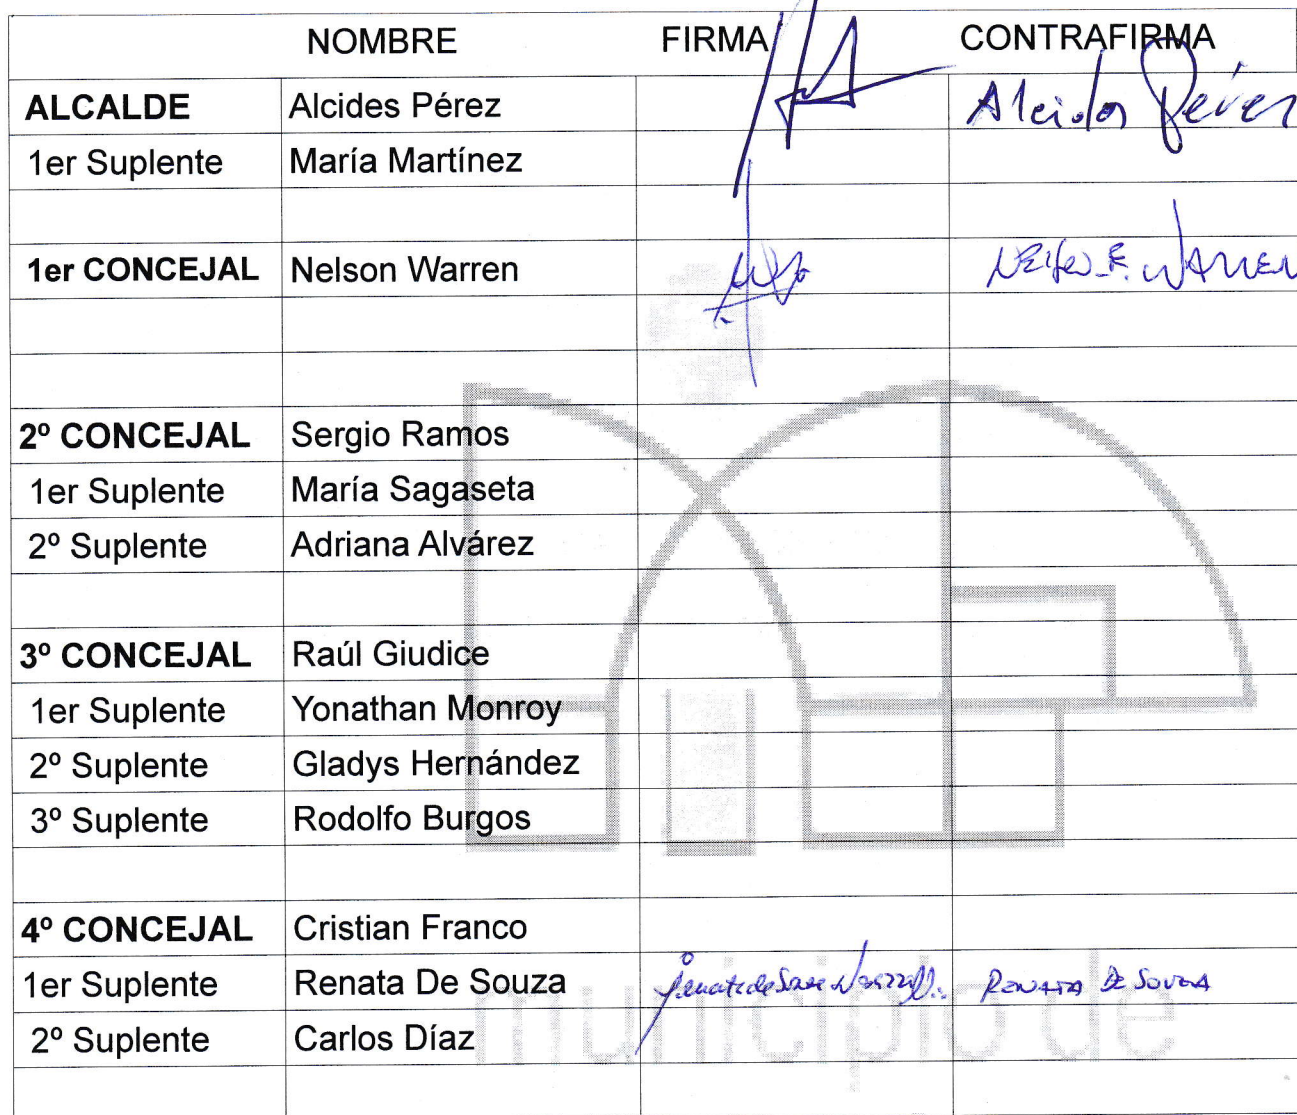 NOMBRE FIRMA CONTRAFIRMA
ALCALDE Alcides Pérez Alcides Pérez
1er Suplente María Martínez
1er CONCEJAL Nelson Warren Nelson F. WARREN
2º CONCEJAL Sergio Ramos
1er Suplente María Sagaseta
2º Suplente Adriana Alvárez
3º CONCEJAL Raúl Giudice
1er Suplente Yonathan Monroy
2º Suplente Gladys Hernández
3º Suplente Rodolfo Burgos
4º CONCEJAL Cristian Franco
1er Suplente Renata De Souza RENATA DE SOUZA
2º Suplente Carlos Díaz
municipio de